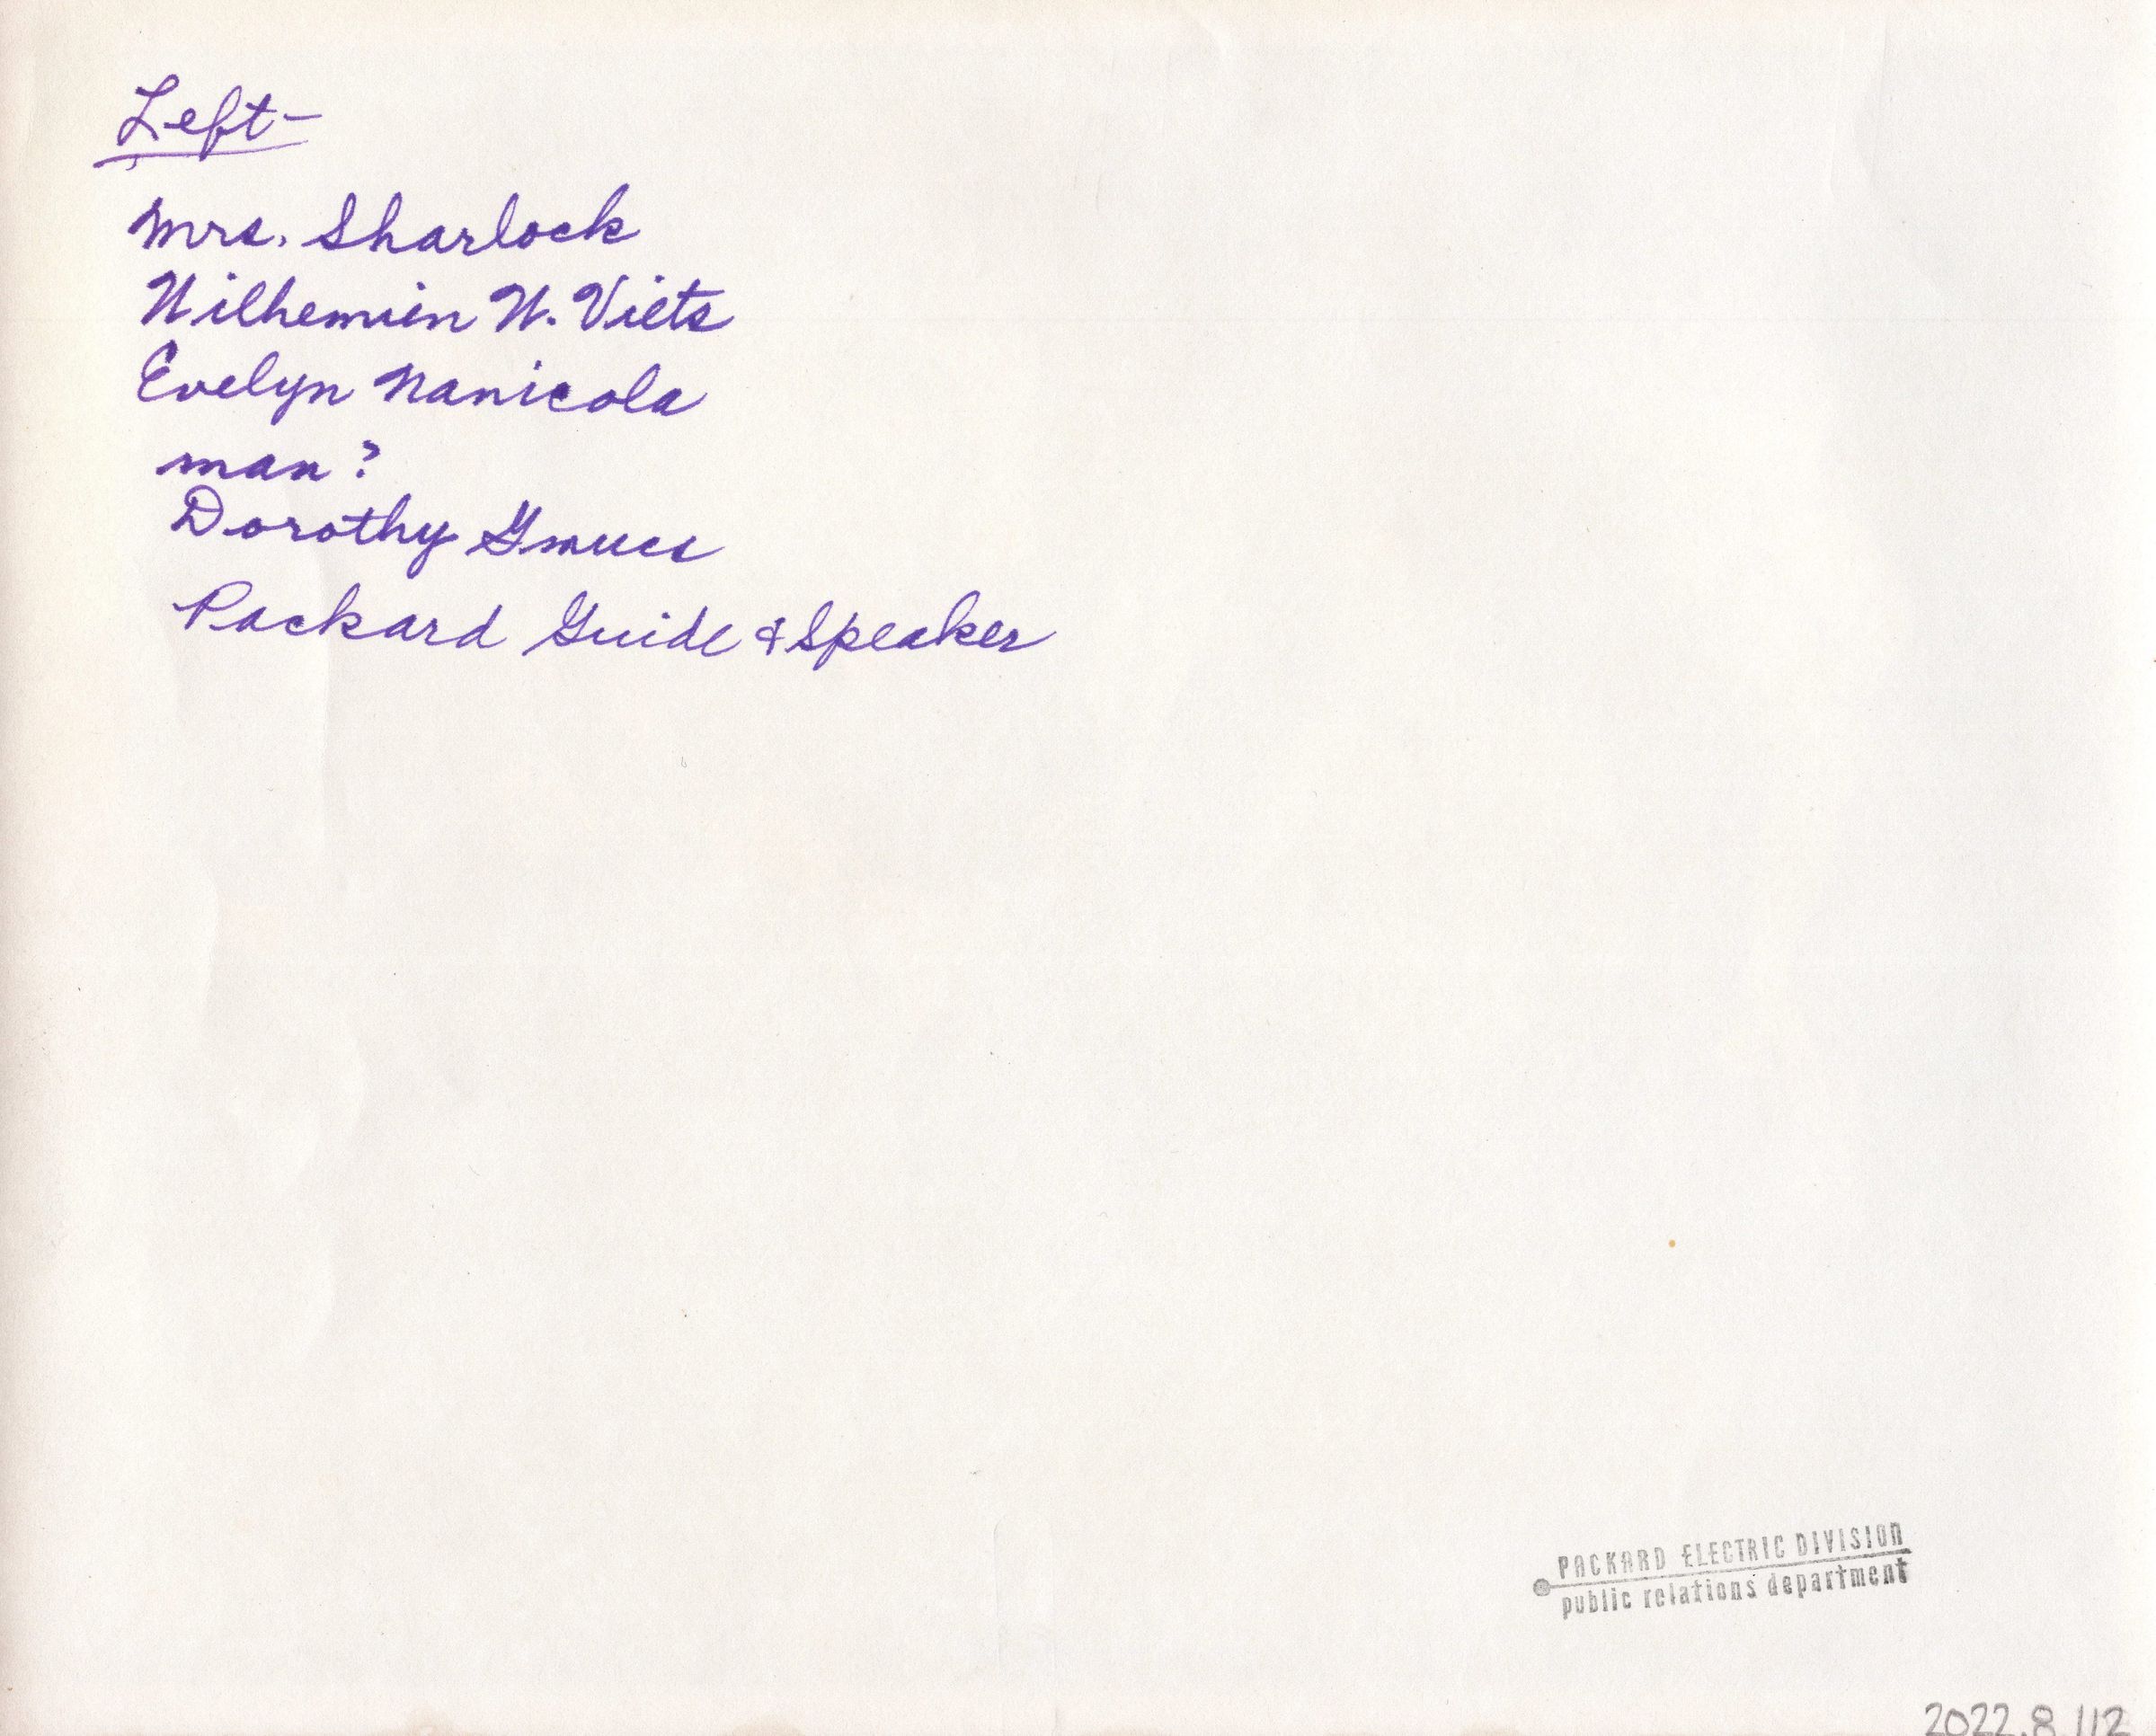 Left-
Mrs. Sharlock
Wilhemien W. Viets
Evelyn Nanicola
man?
Dorothy
Packard Guide & Speaker
PACKARD ELECTRIC DIVISION
public relations department
2022.8.112